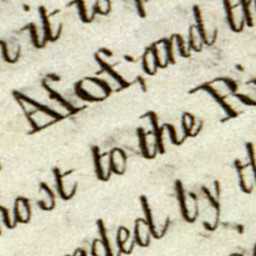 it to
Asof; and th
ost to the Ri
ded by th